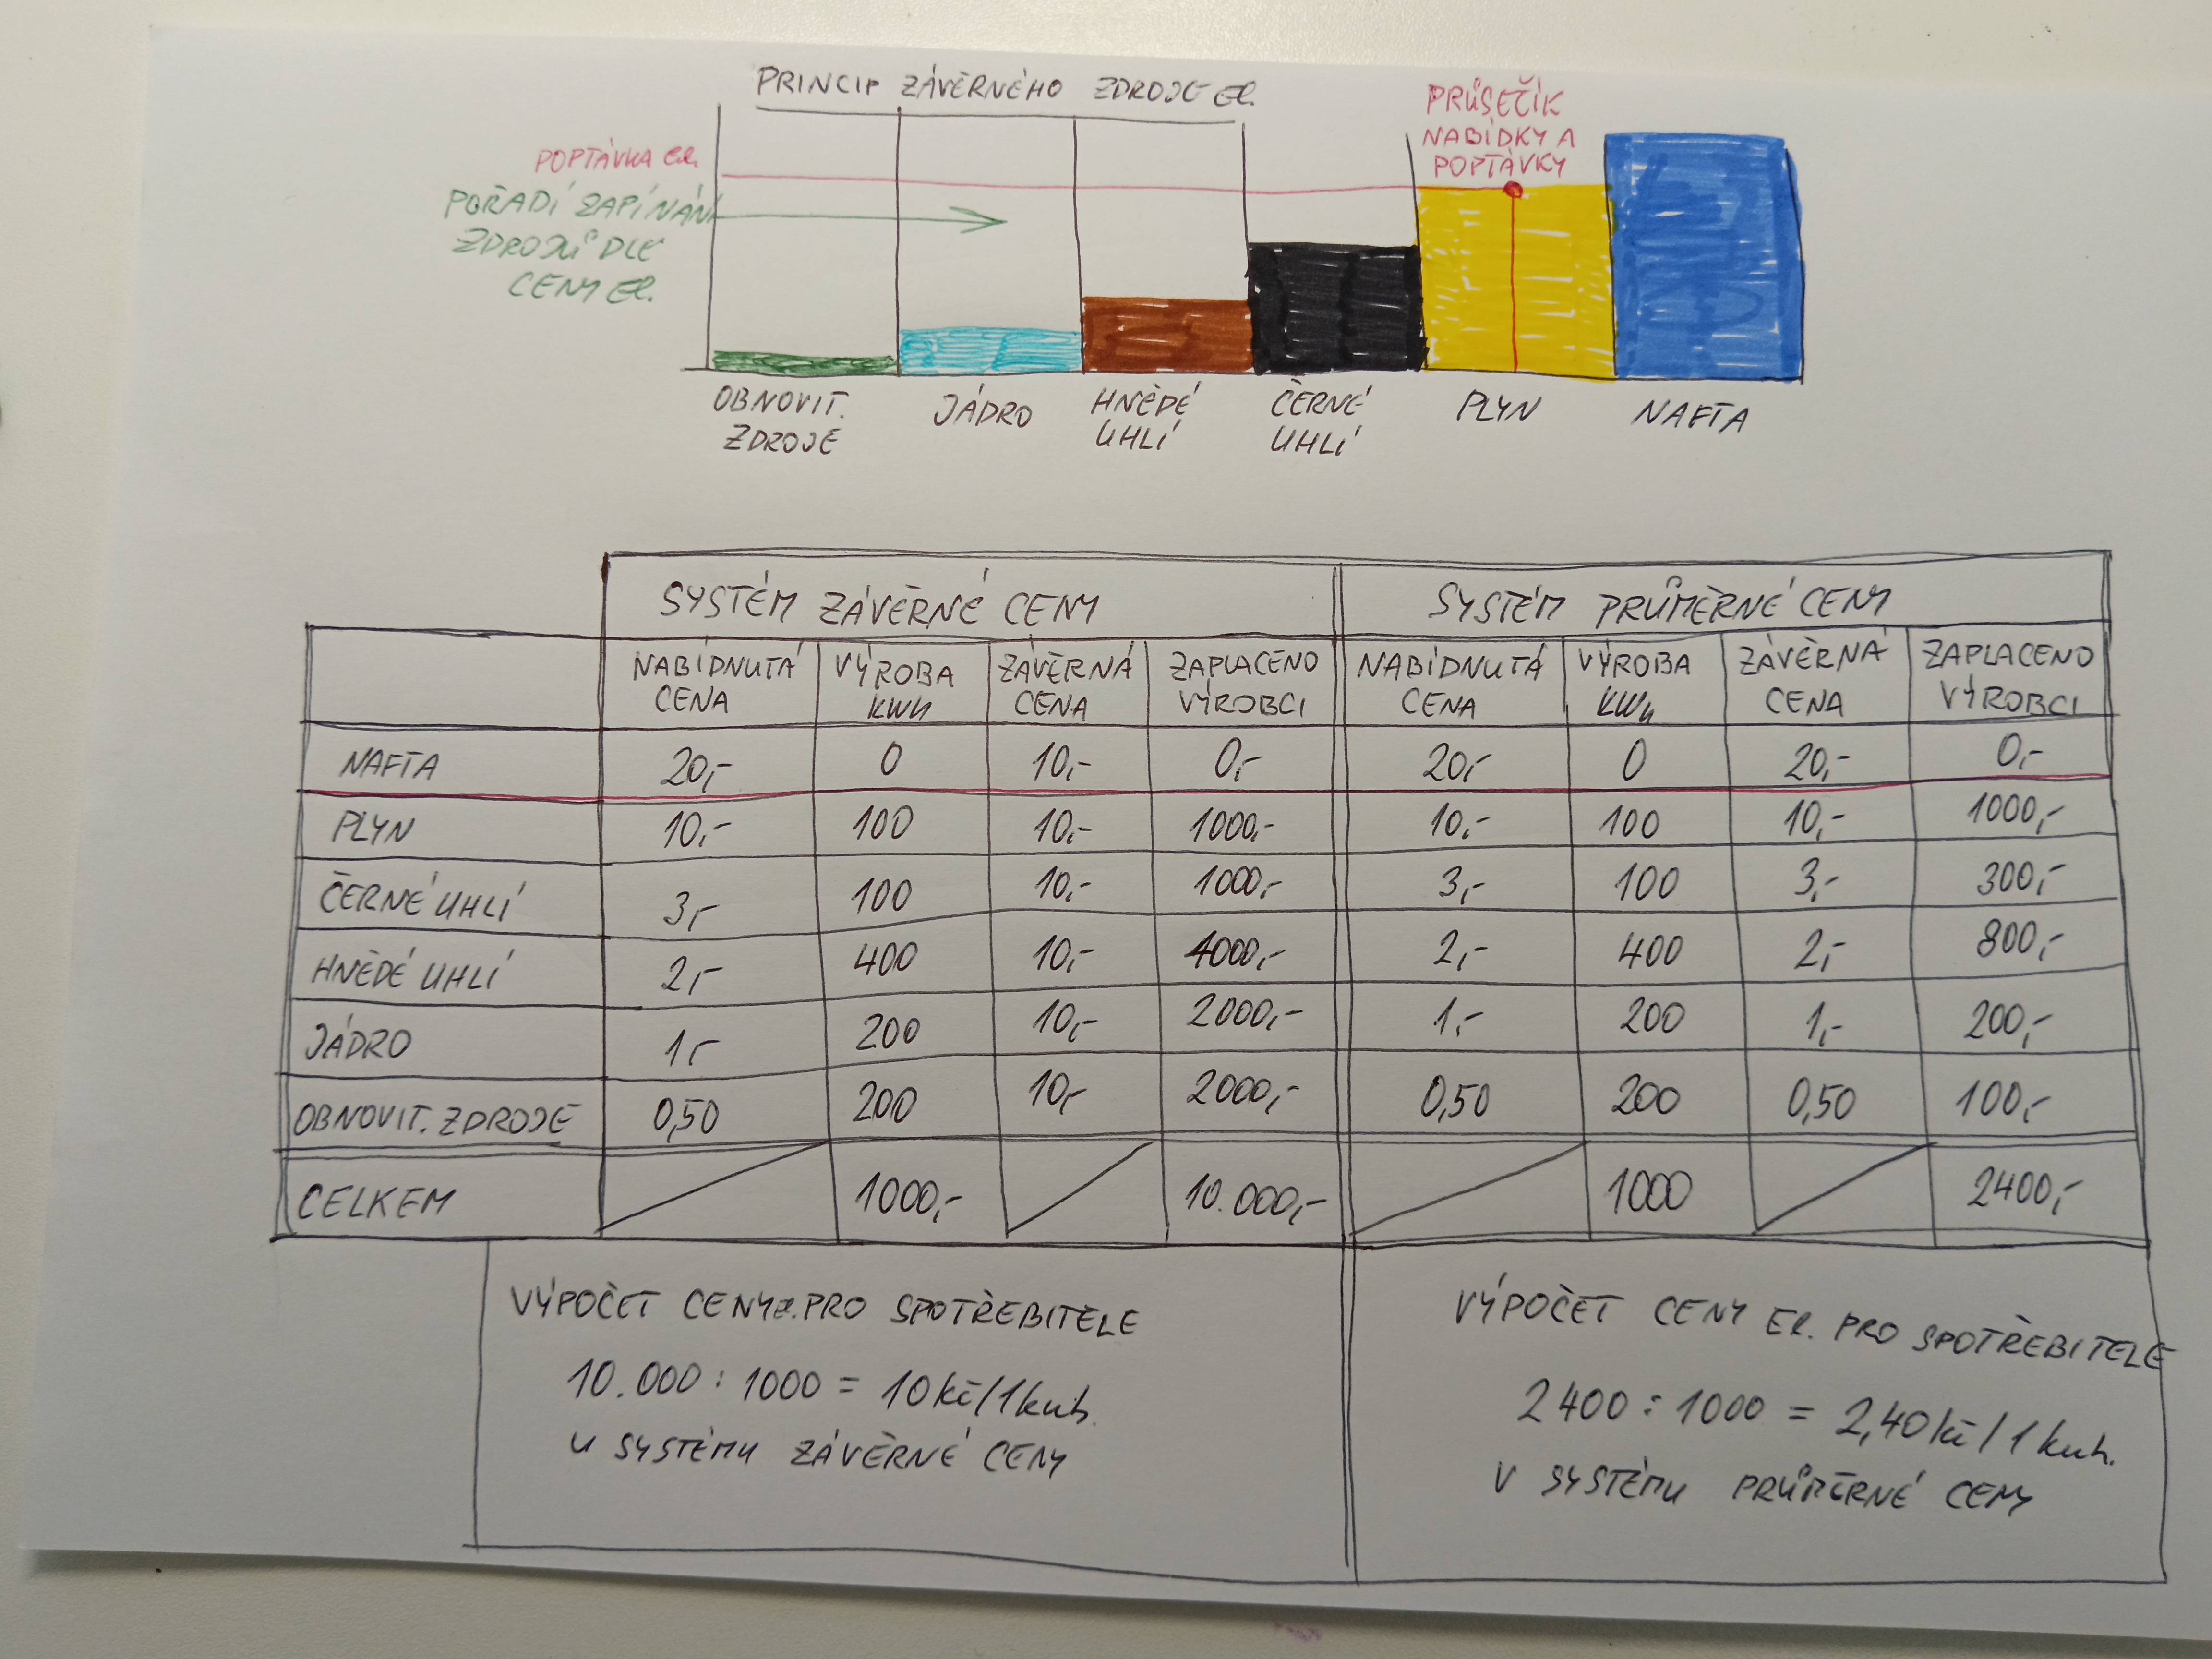 PRINCIP ZÁVĚRNÉHO ZDROJE El.
POPTÁVKA El.
POŘADÍ ZAPÍNÁNÍ
ZDROJŮ DLE
CENY El.
PRŮSEČÍK
NABÍDKY A
POPTÁVKY
OBNOVIT.
ZDROJE
JÁDRO
HNĚDÉ
UHLÍ
ČERNÉ
UHLÍ
PLYN
NAFTA
SYSTÉM ZÁVĚRNÉ CENY
SYSTÉM PRŮMĚRNÉ CENY
NABÍDNUTÁ CENA VÝROBA KWh ZÁVĚRNÁ CENA ZAPLACENO VÝROBCI NABÍDNUTÁ CENA VÝROBA KWh ZÁVĚRNÁ CENA ZAPLACENO VÝROBCI
NAFTA 20,- 0 10,- 0,- 20,- 0 20,- 0,-
PLYN 10,- 100 10,- 1000,- 10,- 100 10,- 1000,-
ČERNÉ UHLÍ 3,- 100 10,- 1000,- 3,- 100 3,- 300,-
HNĚDÉ UHLÍ 2,- 400 10,- 4000,- 2,- 400 2,- 800,-
JÁDRO 1,- 200 10,- 2000,- 1,- 200 1,- 200,-
OBNOVIT. ZDROJE 0,50 200 10,- 2000,- 0,50 200 0,50 100,-
CELKEM 1000,- 10.000,- 1000 2400,-
VÝPOČET CENY El. PRO SPOTŘEBITELE
10.000 : 1000 = 10 kč/1kwh.
U SYSTÉMU ZÁVĚRNÉ CENY
VÝPOČET CENY El. PRO SPOTŘEBITELE
2400 : 1000 = 2,40 kč/1kwh.
V SYSTÉMU PRŮMĚRNÉ CENY